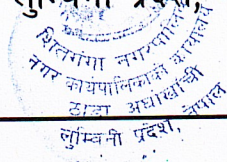 लुम्बिनी प्रदेश,
शितगंगा नगरपालिका
नगर कार्यपालिकाको कार्यालय
ठाडा अर्घाखाँची
लुम्बिनी प्रदेश, नेपाल